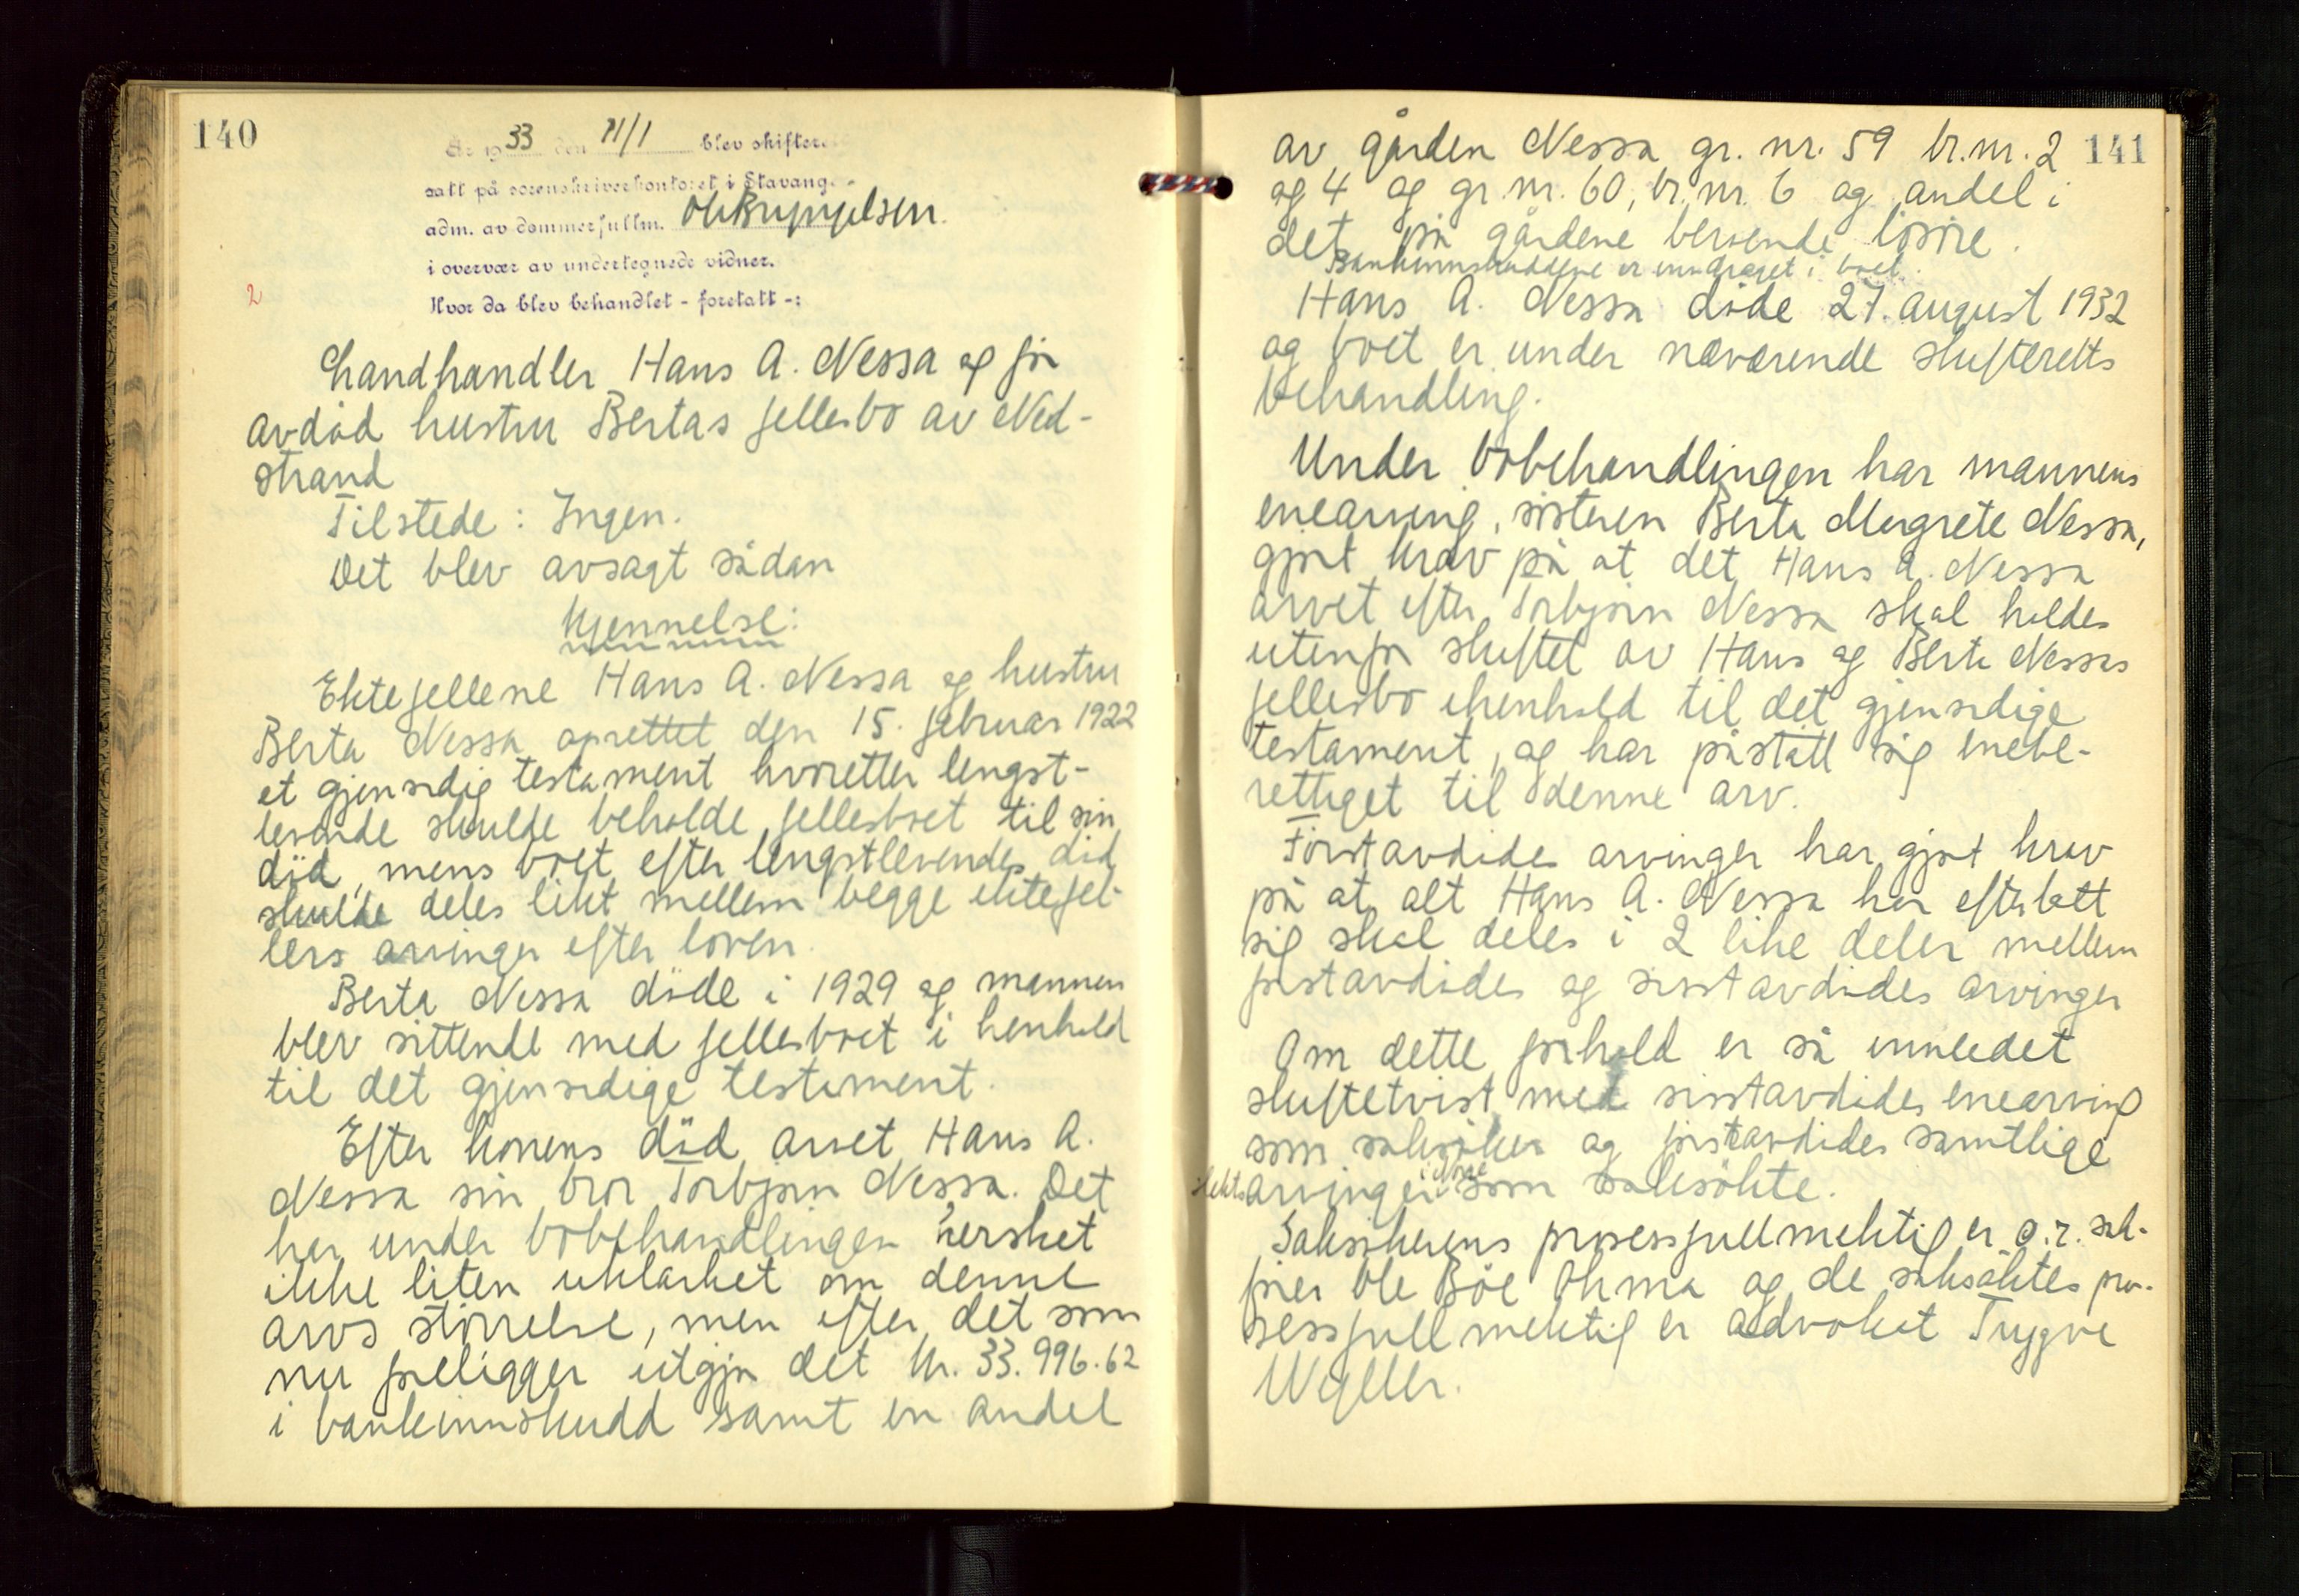 140
År 1933 den 11/1 blev skiftere
satt på sorenskriverkontoret i Stavange
adm. av dommerfullm.
i overvær av undertegnede vidner.
2
Hvor da blev behandlet - foretatt -:
Landhandler Hans A. Nessa og før
avdöd hustru Bertas fellesbo av Ned-
strand
Tilstede: Ingen.
Det blev avsagt sådan
kjennelse:
Ektefellene Hans A. Nessa og hustru
Berta Nessa oprettet den 15. februar 1922
et gjensidig testament hvoretter lengst-
levende skulde beholde fellesboet til sin
död, mens boet efter lengstlevendes död
skulde deles likt mellem begge ektefel-
lers arvinger efter loven.
Berta Nessa döde i 1929 og mannen
blev sittende med fellesboet i henhold
til det gjensidige testament.
Efter konens död arvet Hans A.
Nessa sin bror Torbjörn Nessa. Det
har under bobehandlingen hersket
ikke liten uklarhet om denne
arvs störrelse, men efter det som
nu foreligger utgjör det kr. 33.996.62
i bankinnskudd samt en andel
141
av gården Nessa gr. nr. 59 br. nr. 2
og 4 og gr. nr. 60, br. nr. 6 og andel i
det på gårdene beroende lösöre.
Bankinnskuddene er inndraget i boet.
Hans A. Nessa döde 27. august 1932
og boet er under nærværende skifteretts
behandling.
Under bobehandlingen har mannens
enearving, sösteren Berta Margrete Nessa,
gjort krav på at det Hans A. Nessa
arvet efter Torbjörn Nessa skal holdes
utenfor skiftet av Hans og Berta Nessas
fellesbo ihenhold til det gjensidige
testament, og har påstått sig enebe-
rettiget til denne arv.
Förstavdödes arvinger har gjort krav
på at alt Hans A. Nessa har efterlatt
sig skal deles i 2 like deler mellem
förstavdödes og sisstavdödes arvinger
Om dette forhold er så innledet
skiftetvist med sisstavdödes enearving
som saksöker og förstavdödes samtlige
slektsarvinger som saksökte.
Saksökerens prosessfullmektig er o.r. sak-
förer Ole Böe Ohma og de saksöktes pro-
sessfullmektig er advokat Trygve